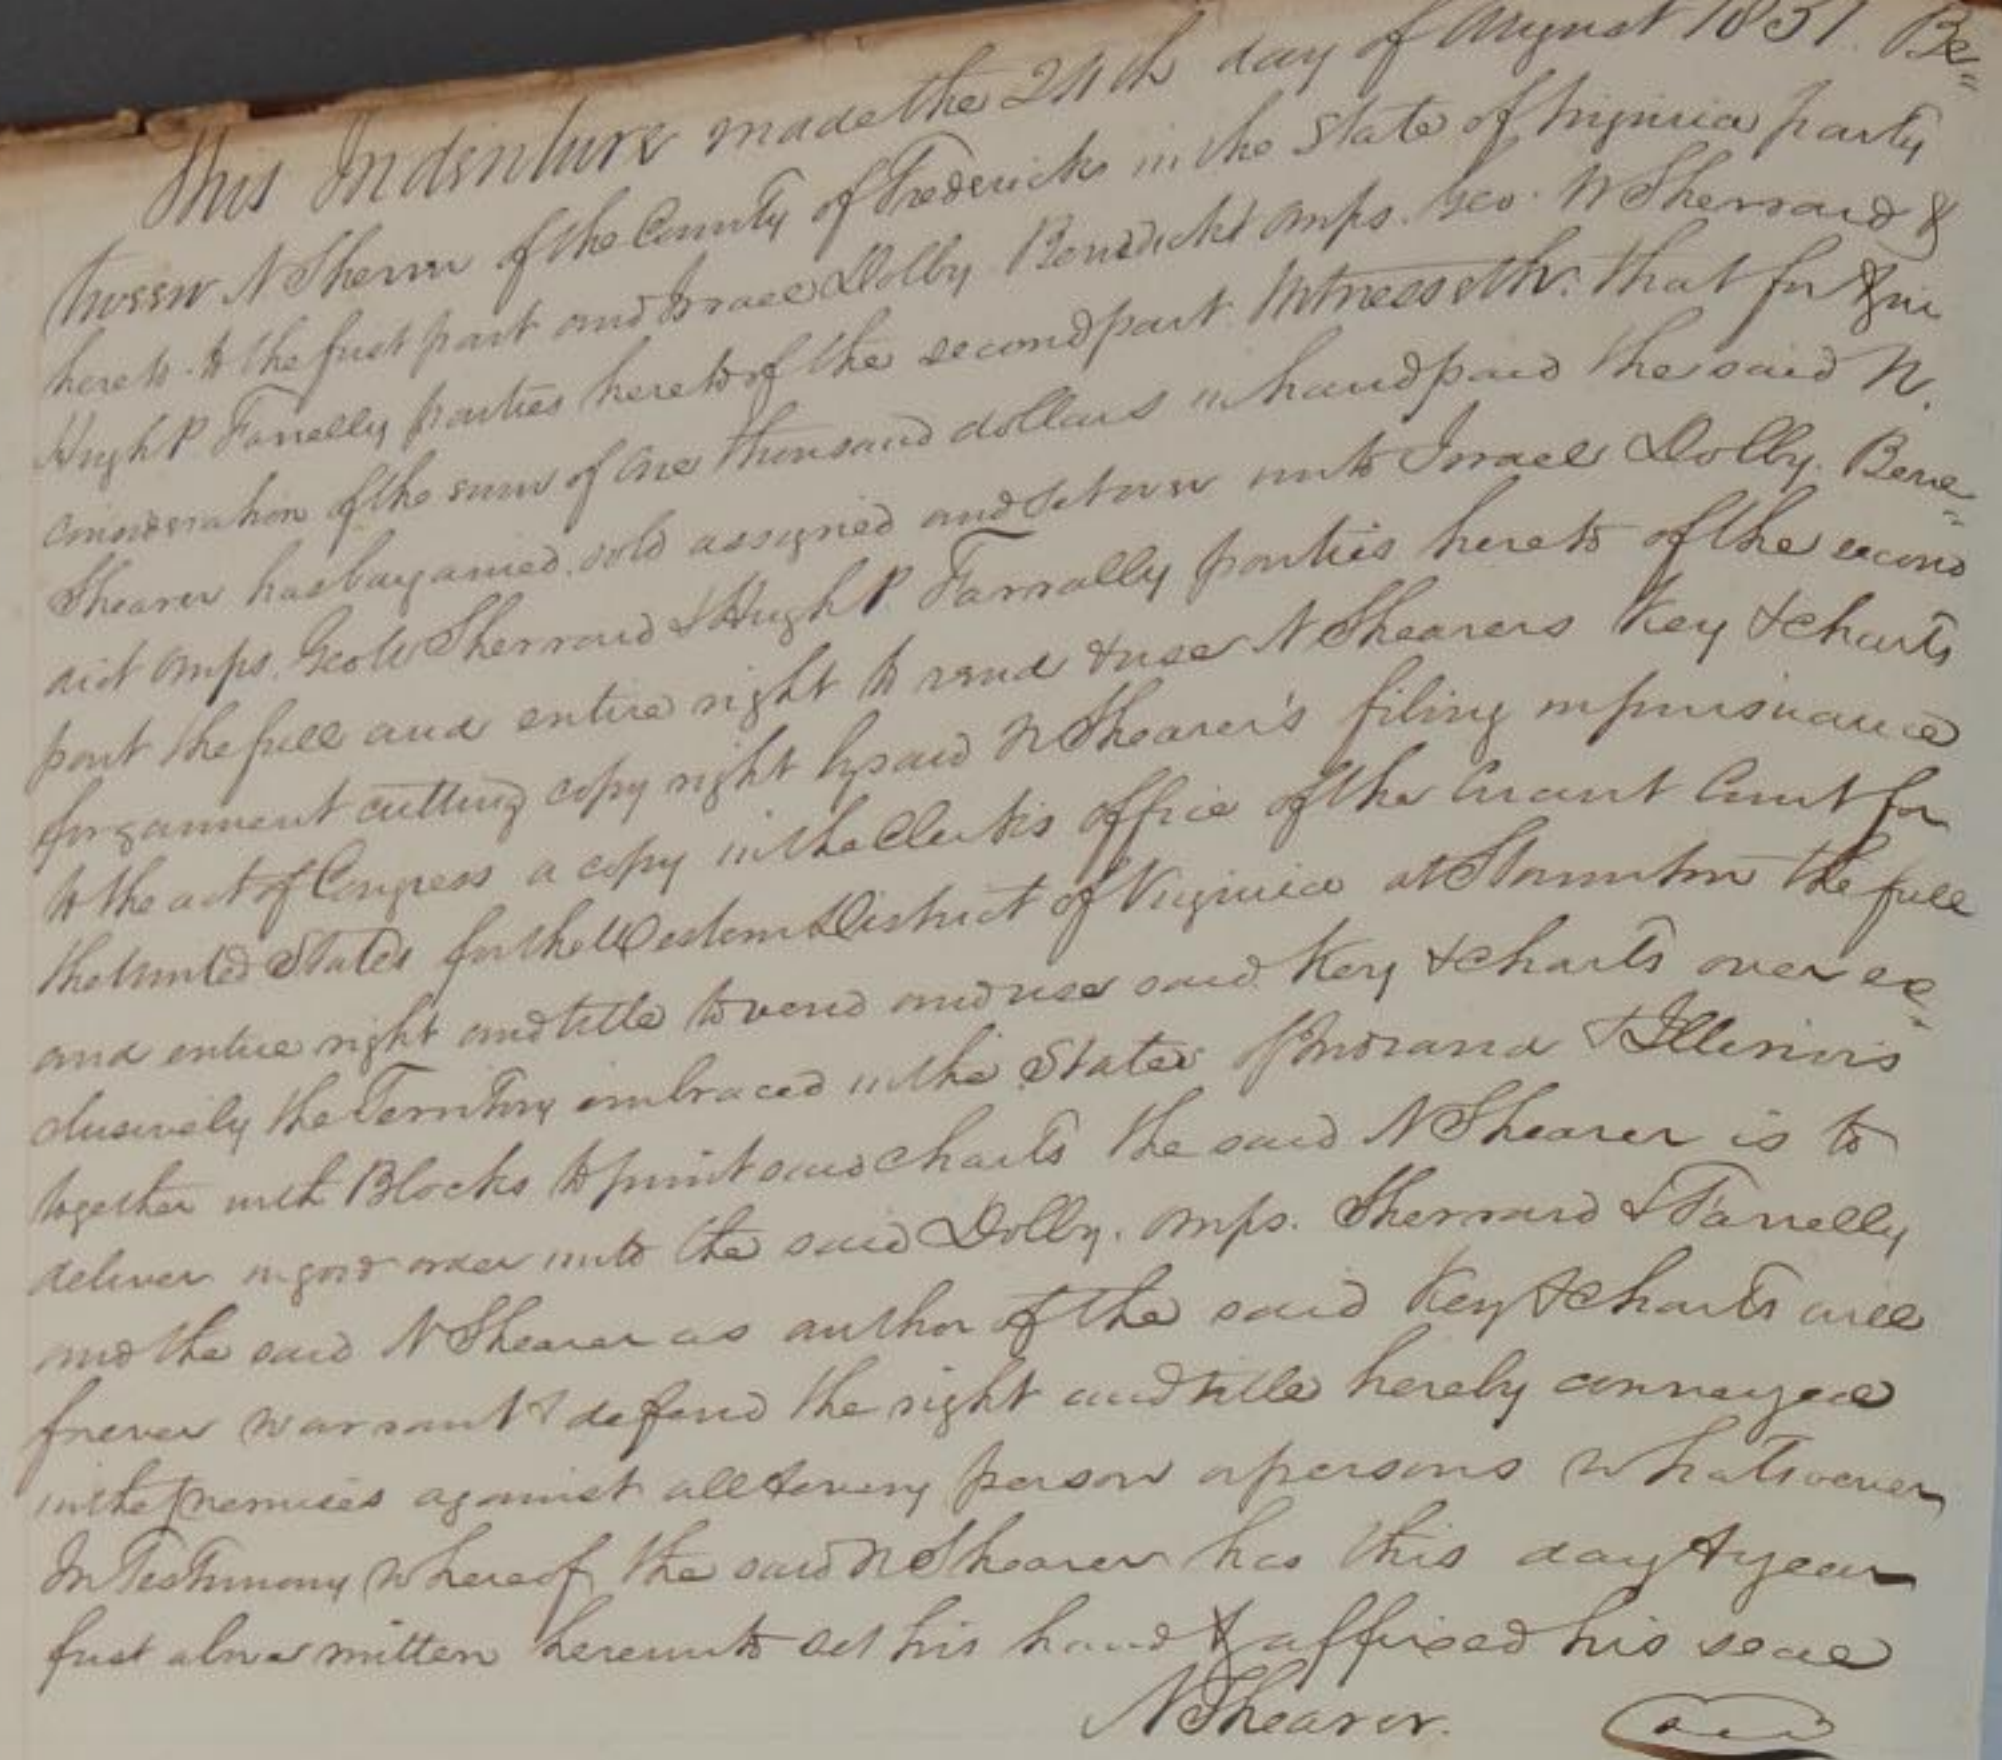 This Indenture made the 24th day of August 1851. Be=
tween N Shearer of the County of Frederick in the State of Virginia party
hereto of the first part and Israel Dolby Benedict Omps. Geo. W Sherrard &
Hugh P Farrelly parties hereto of the second part Witnesseth: that for & in
consideration of the sum of one thousand dollars in hand paid the said N.
Shearer has bargained, sold assigned and set over unto Israel Dolby. Bene=
dict Omps. Geo W Sherrard & Hugh P. Farrally parties hereto of the second
part the full and entire right to vend & use N Shearers Key & charts
for garment cutting copy right by said N Shearer's filing in pursuance
to the act of Congress a copy in the Clerks office of the Circuit Court for
the United States for the Western District of Virginia at Staunton the full
and entire right and title to vend and use said Key & charts over ex=
clusively the Territory embraced in the States of Indiana & Illinois
together with Blocks to print said charts the said N Shearer is to
deliver in good order unto the said Dolby. Omps. Sherrard & Farrelly
and the said N Shearer as author of the said Key & charts will
forever warrant & defend the right and title hereby conveyed
in the premises against all & every person or persons whatsoever
In Testimony whereof the said N Shearer has this day & year
first above written hereunto set his hand & affixed his seal
N Shearer.